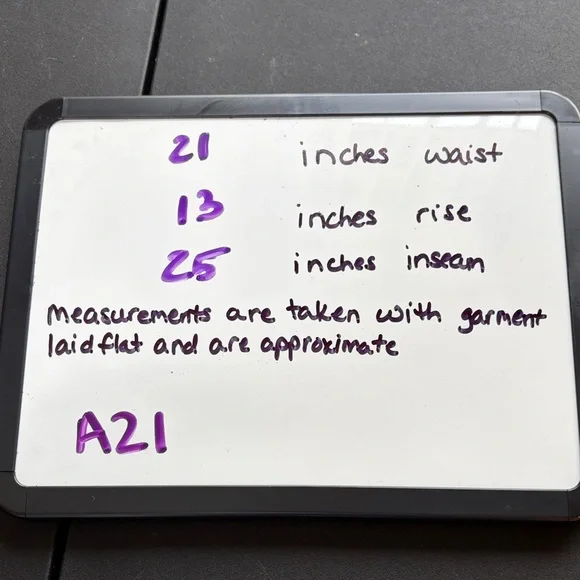 21 inches waist
13 inches rise
25 inches inseam
measurements are taken with garment
laid flat and are approximate
A21